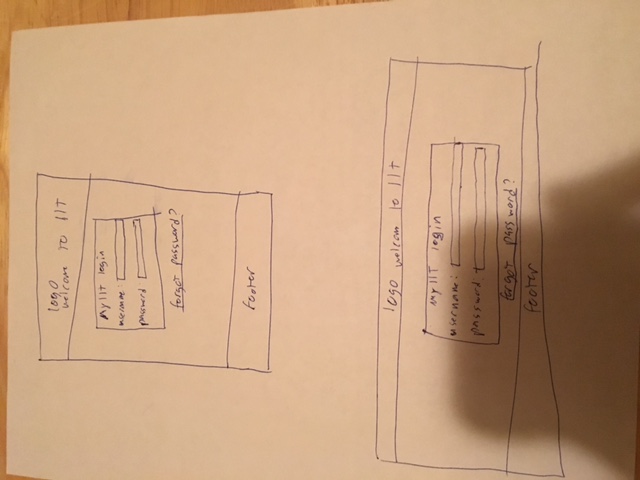 logo
welcome to IIT
My IIT login
username:
password
forgot password?
footer
logo welcom to IIT
My IIT login
username:
password:
forgot password?
footer